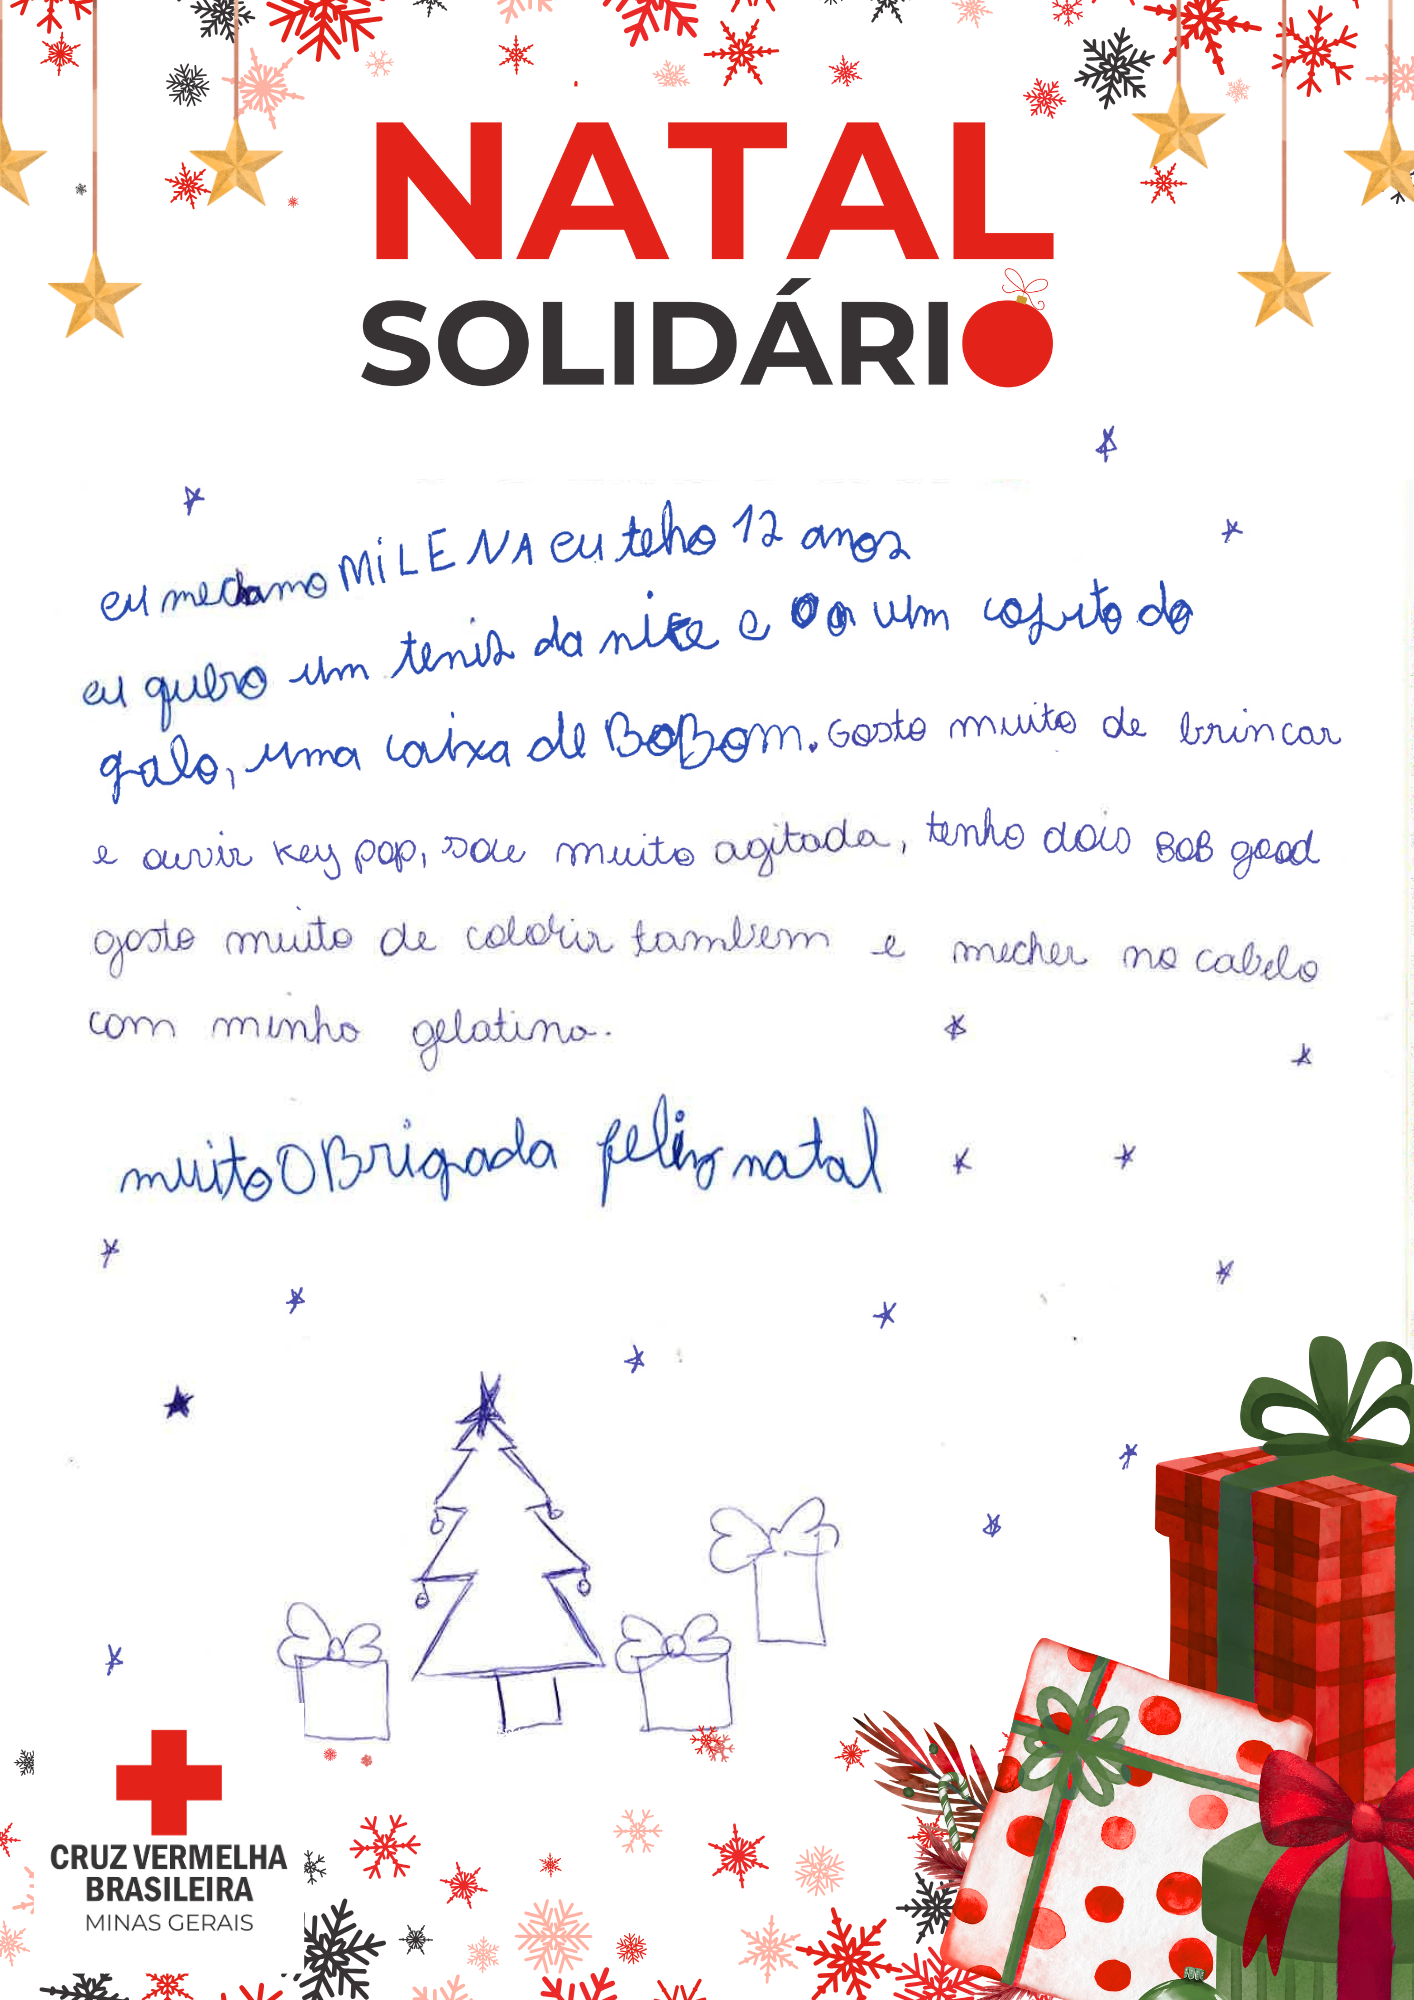 NATAL
SOLIDÁRIO
eu mechamo MiLENA eu teho 12 anos
eu quero um tenis da nike e um do
galo, uma caixa de BoBom. Gosto muito de brincar
e ouvir Key pop, sou muito agitada, tenho dois BOB good
gosto muito de colorir tambem e mecher no cabelo
com minha gelatina.
muito OBrigada feliz natal
CRUZ VERMELHA
BRASILEIRA
MINAS GERAIS